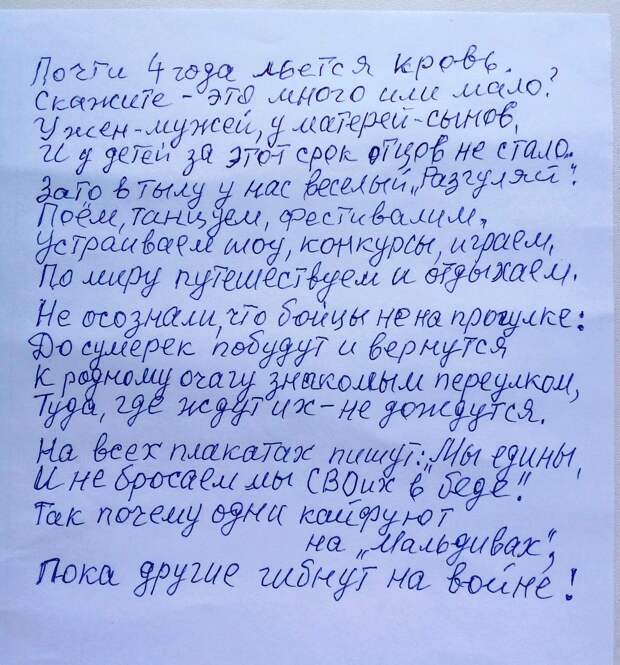 Почти 4 года льётся кровь.
Скажите - это много или мало?
У жен-мужей, у матерей-сынов,
И у детей за этот срок отцов не стало.
Зато в тылу у нас веселый „Разгуляй".
Поём, танцуем, фестивалим,
Устраиваем шоу, конкурсы, играем,
По миру путешествуем и отдыхаем.
Не осознали, что бойцы не на прогулке:
До сумерек побудут и вернутся
К родному очагу знакомым переулком,
Туда, где ждут их - не дождутся.
На всех плакатах пишут: „Мы едины,
И не бросаем мы СВОих в беде".
Так почему одни кайфуют
на „Мальдивах",
Пока другие гибнут на войне!